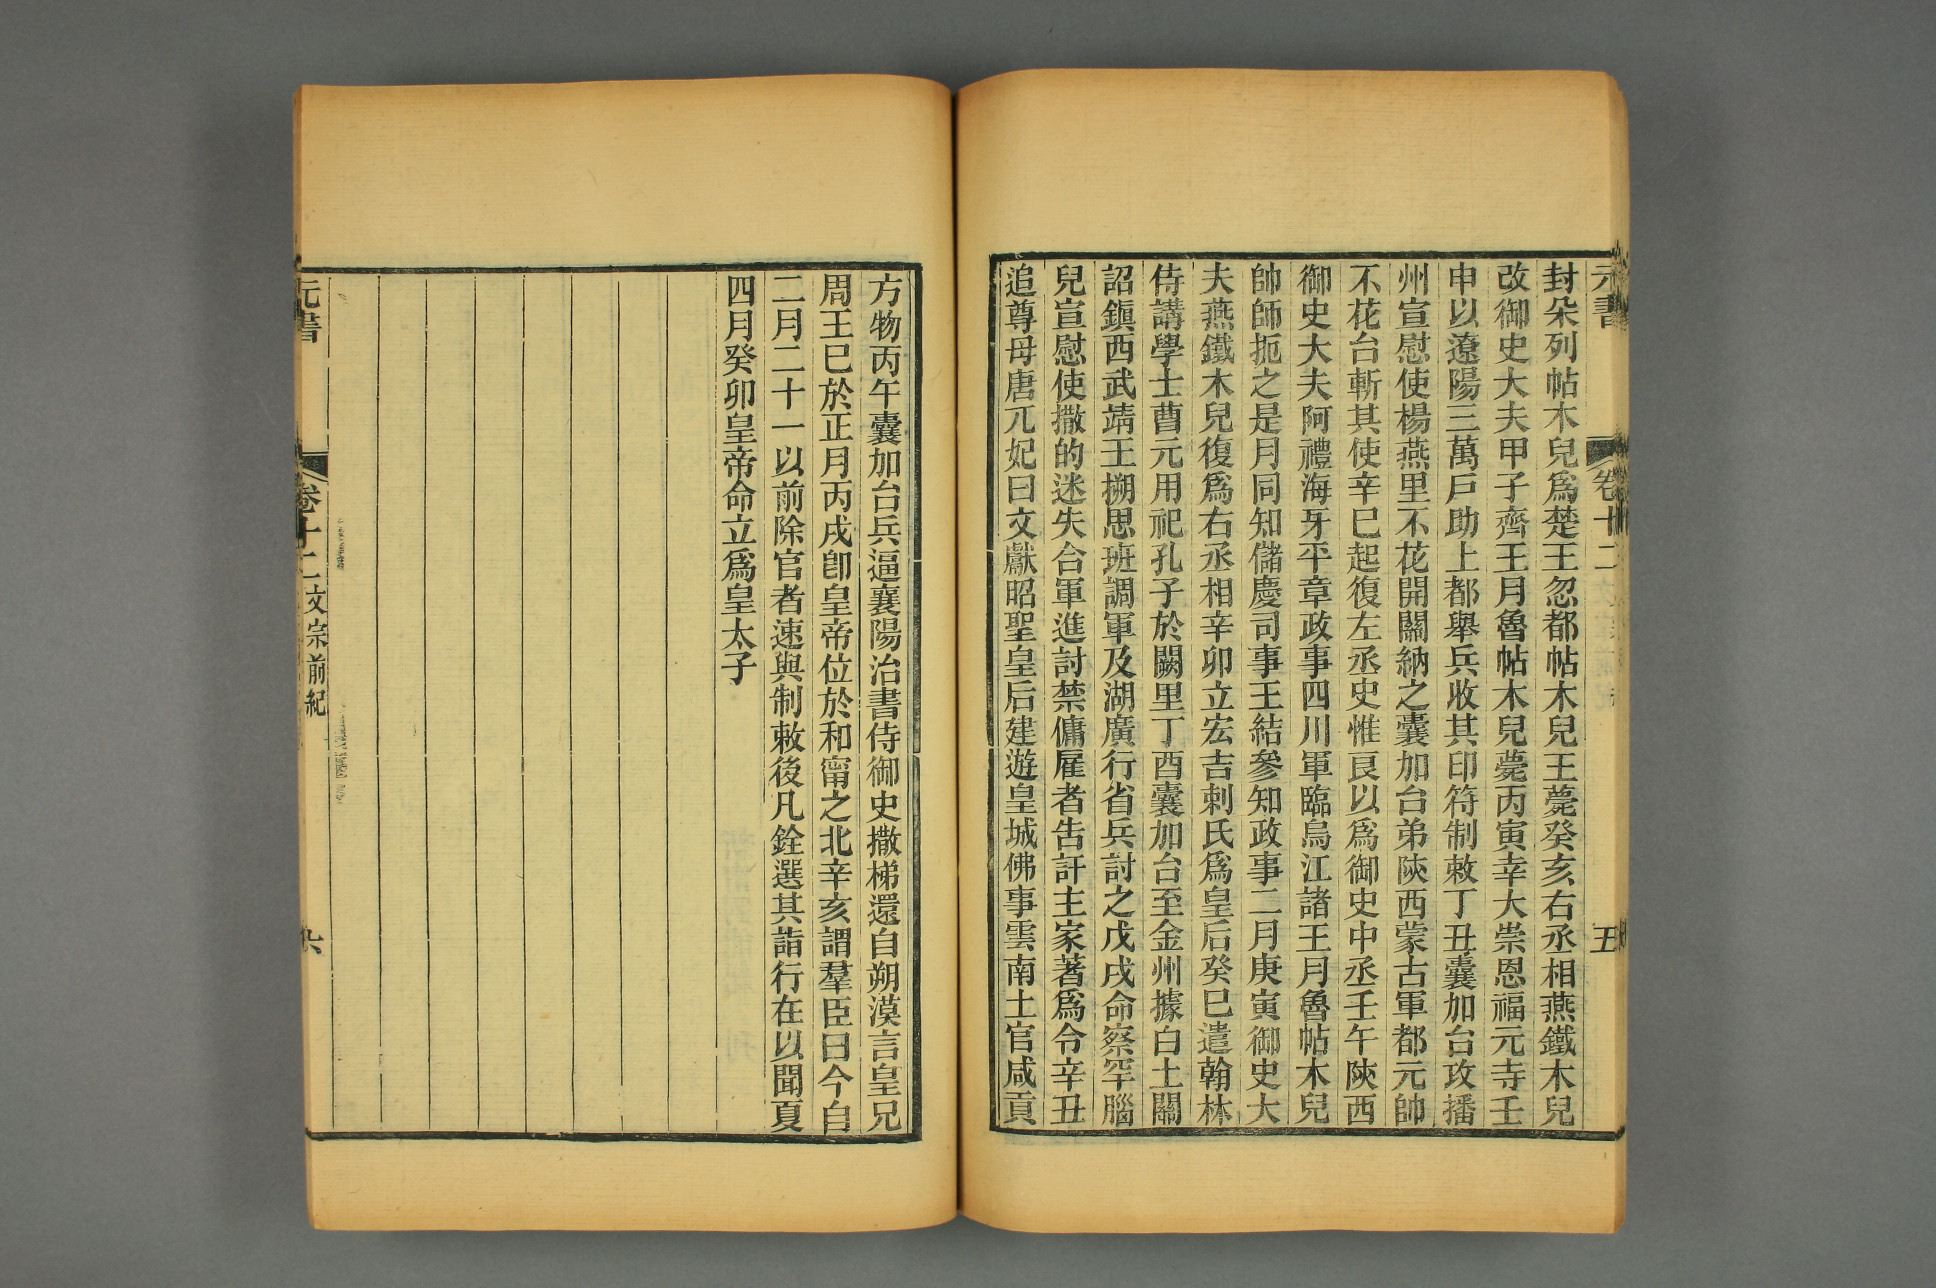 元書
卷十二
五
封朵列帖木兒爲楚王忽都帖木兒王薨癸亥右丞相燕鐵木兒
改御史大夫甲子齊王月魯帖木兒薨丙寅幸大崇恩福元寺壬
申以遼陽三萬戶助上都舉兵收其印符制敕丁丑囊加台攻播
州宣慰使楊燕里不花開關納之囊加台弟陝西蒙古軍都元帥
不花台斬其使辛巳起復左丞史惟良以爲御史中丞壬午陝西
御史大夫阿禮海牙平章政事四川軍臨烏江諸王月魯帖木兒
帥師扼之是月同知儲慶司事王結參知政事二月庚寅御史大
夫燕鐵木兒復爲右丞相辛卯立宏吉剌氏爲皇后癸巳遣翰林
侍講學士曹元用祀孔子於闕里丁酉囊加台至金州據白土關
詔鎭西武靖王搠思班調軍及湖廣行省兵討之戊戌命察罕腦
兒宣慰使撒的迷失合軍進討禁傭雇者告訐主家著爲令辛丑
追尊母唐兀妃曰文獻昭聖皇后建遊皇城佛事雲南土官咸貢
方物丙午囊加台兵逼襄陽治書侍御史撒梯還自朔漠言皇兄
周王巳於正月丙戌卽皇帝位於和甯之北辛亥謂羣臣曰今自
二月二十一以前除官者速與制敕後凡銓選其詣行在以聞夏
四月癸卯皇帝命立爲皇太子
元書
卷十二文宗前紀
六